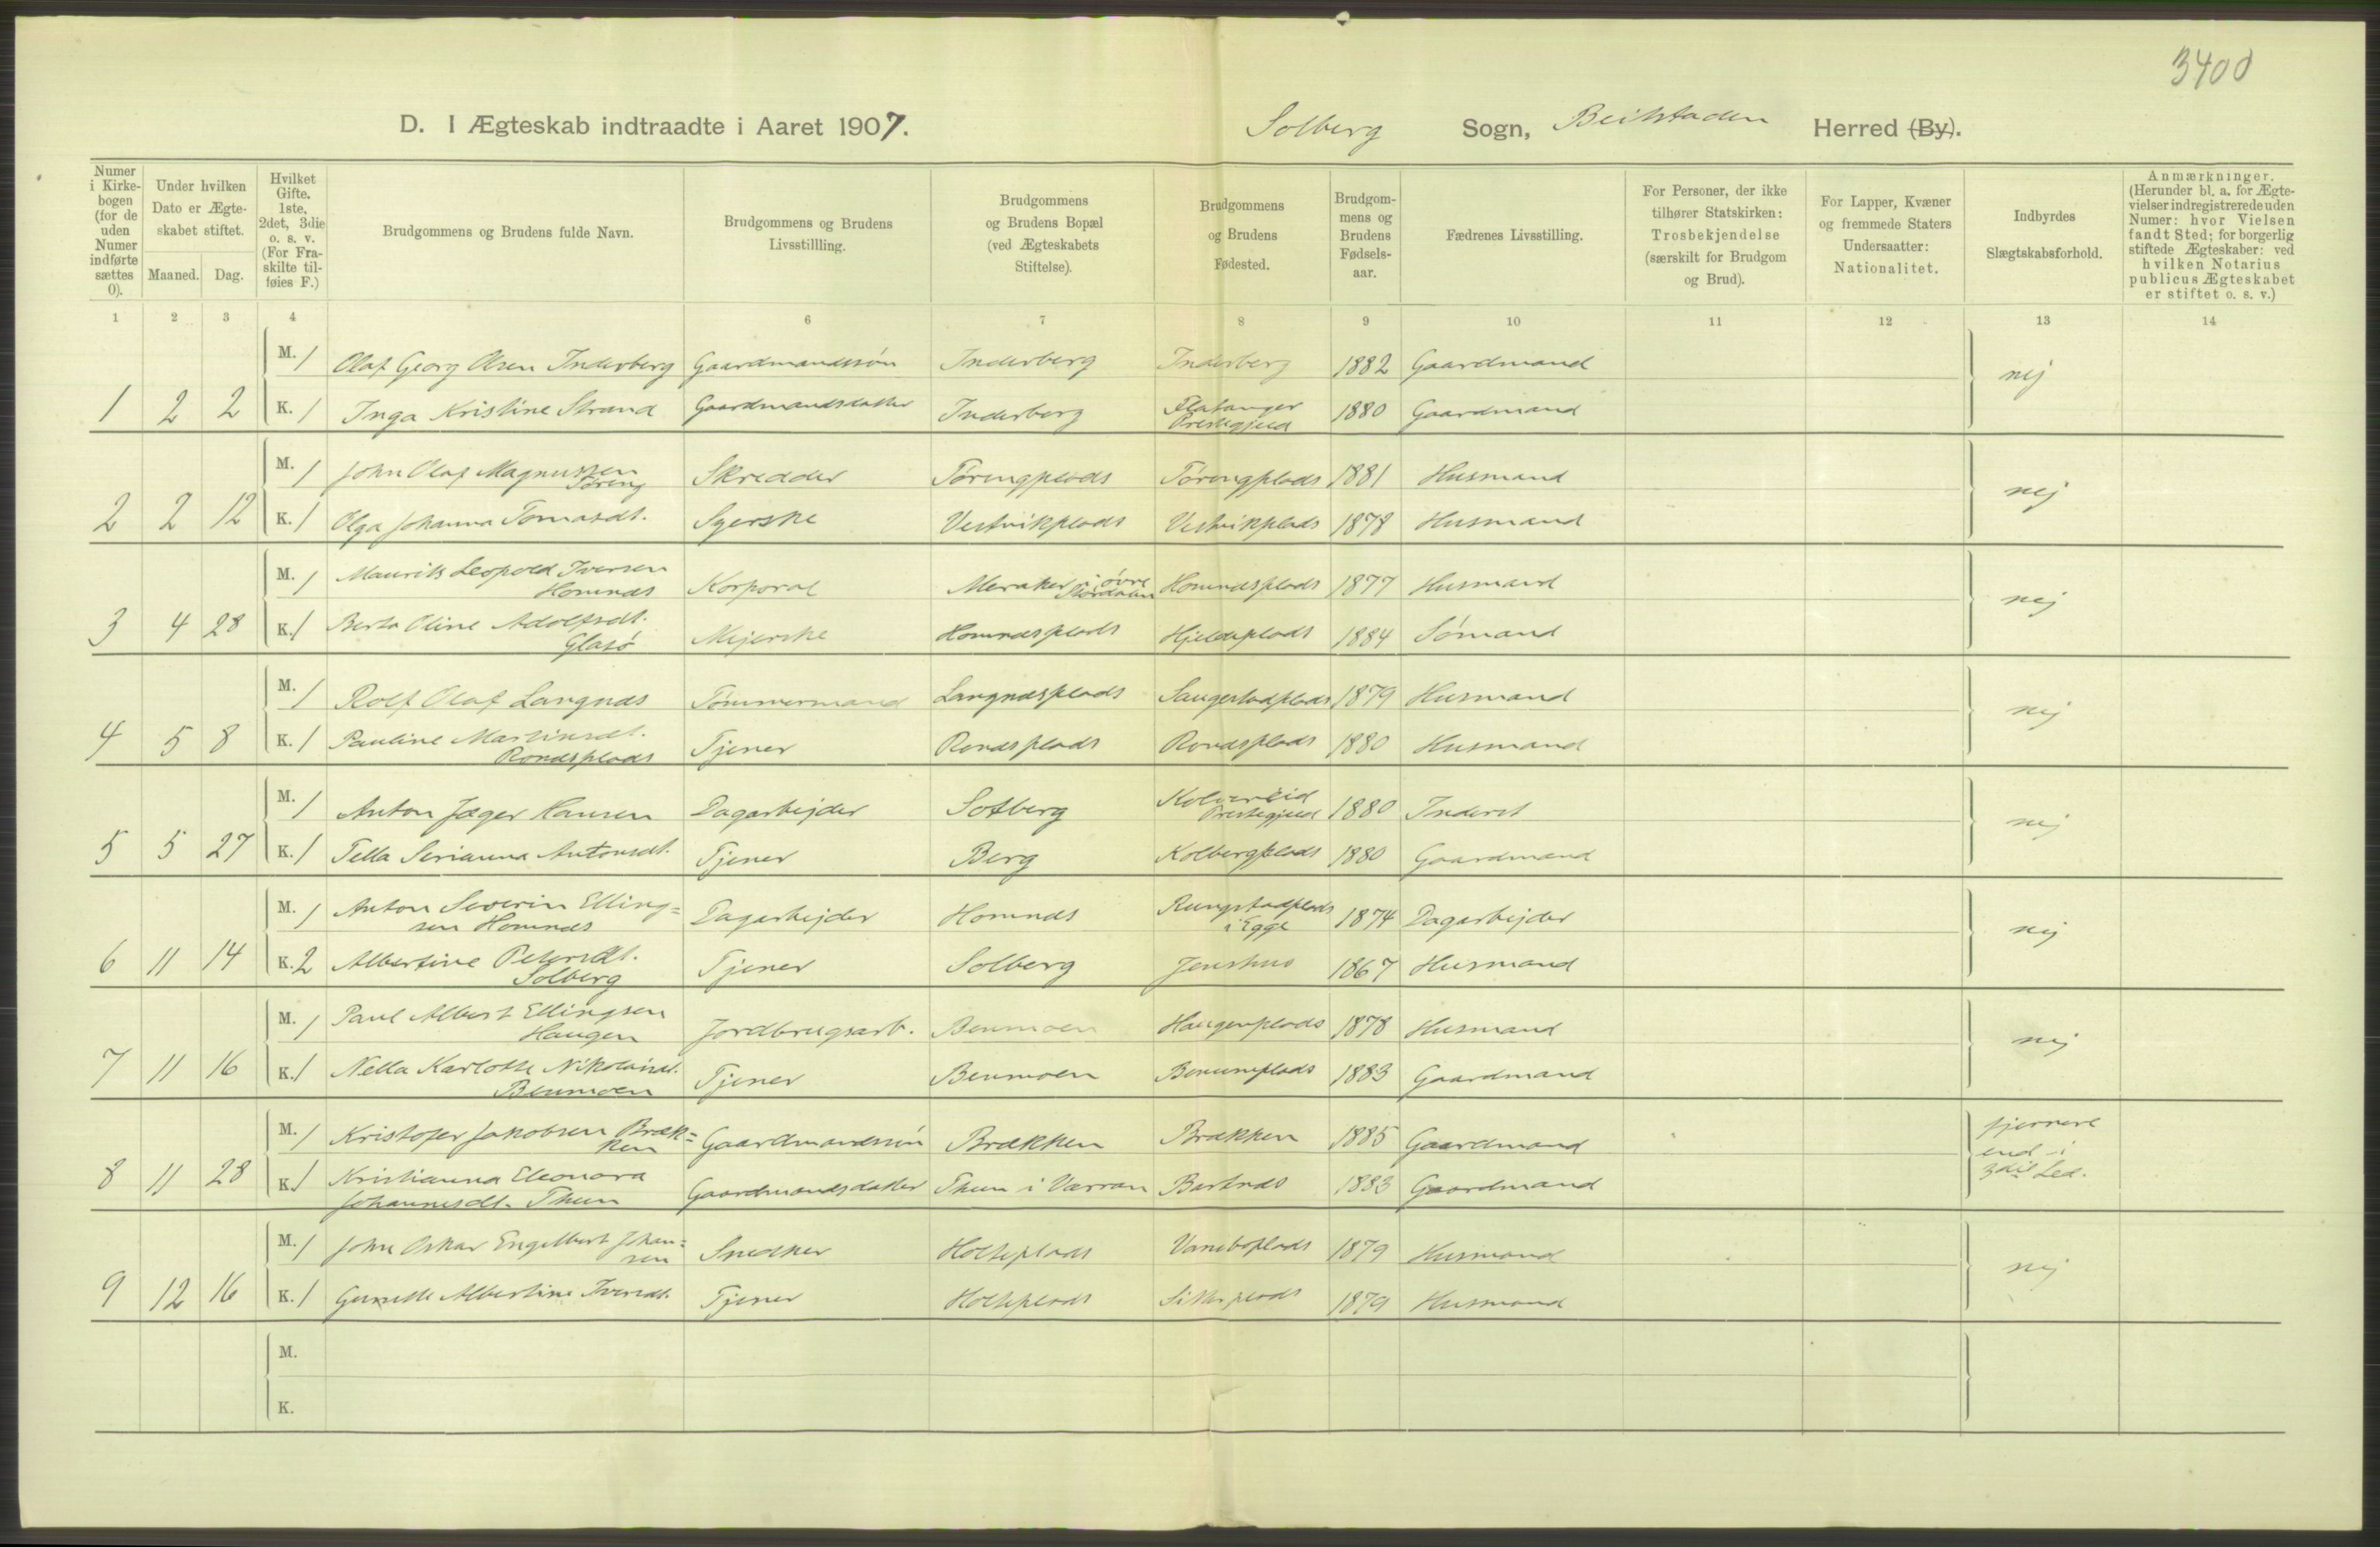 3400
D. I Ægteskab indtraadte i Aaret 1907. Solberg Sogn, Beitstaden Herred (By).
Numer i Kirkebogen (for de uden Numer indførte sættes 0).
Under hvilken Dato er Ægteskabet stiftet.
Maaned. Dag.
Hvilket Gifte. 1ste, 2det, 3die o. s. v. (For Fraskilte tilføies F.)
Brudgommens og Brudens fulde Navn.
Brudgommens og Brudens Livsstillling.
Brudgommens og Brudens Bopæl (ved Ægteskabets Stiftelse).
Brudgommens og Brudens Fødested.
Brudgommens og Brudens Fødselsaar.
Fædrenes Livsstilling.
For Personer, der ikke tilhører Statskirken: Trosbekjendelse (særskilt for Brudgom og Brud).
For Lapper, Kvæner og fremmede Staters Undersaatter: Nationalitet.
Indbyrdes Slægtskabsforhold.
Anmærkninger. (Herunder bl. a. for Ægtevielser indregistrerede uden Numer: hvor Vielsen fandt Sted; for borgerlig stiftede Ægteskaber: ved hvilken Notarius publicus Ægteskabet er stiftet o. s. v.)
1 2 3 4 6 7 8 9 10 11 12 13 14
M. 1 Olaf Georg Olsen Inderberg Gaardmandssøn Inderberg Inderberg 1882 Gaardmand nej
1 2 2 K. 1 Inga Kristine Strand Gaardmandsdatter Inderberg Flatanger Prestegjeld 1880 Gaardmand
M. 1 John Olaf Magnussen Tøring Skredder Tøringplads Tøringplads 1881 Husmand nej
2 2 12 K. 1 Olga Johanna Tomasdt. Syerske Vestvikplads Vestvikplads 1878 Husmand
M. 1 Maurits Leopold Iversen Homnæs Korporal Meraker i øvre Størdalen Homnæsplads 1877 Husmand nej
3 4 28 K. 1 Berta Oline Adolfsdt. Glasø Mejerske Homnæsplads Hjeldeplads 1884 Sømand
M. 1 Rolf Olaf Langnæs Tømmermand Langnæsplads Saugestadplads 1879 Husmand nej
4 5 8 K. 1 Pauline Martinsdt. Ronæsplads Tjener Ronæsplads Ronæsplads 1880 Husmand
M. 1 Anton Jæger Hansen Dagarbejder Solberg Kolvereid Prestegjeld 1880 Inderst nej
5 5 27 K. 1 Tella Serianna Antonsdt. Tjener Berg Kolbergplads 1880 Gaardmand
M. 1 Anton Severin Ellingsen Homnæs Dagarbejder Homnæs Rungstadplads i Egge 1874 Dagarbejder nej
6 11 14 K. 2 Albertine Petersdt. Solberg Tjener Solberg Jenshus 1867 Husmand
M. 1 Paul Albert Ellingsen Haugen Jordbrugsarb. Benmoen Haugenplads 1878 Husmand nej
7 11 16 K. 1 Nella Karlotte Nikolaisdt. Benmoen Tjener Benmoen Benumplads 1883 Gaardmand
M. 1 Kristofer Jakobsen Brækken Gaardmandssøn Brækken Brækken 1885 Gaardmand fjernere end i 3die Led.
8 11 28 K. 1 Kristianna Eleonora Johannesdt. Thun Gaardmandsdatter Thun i Værran Bartnæs 1883 Gaardmand
M. 1 John Oskar Engelbert Johansen Snedker Holteplads Vaneboplads 1879 Husmand nej
9 12 16 K. 1 Albertine Iversdt. Tjener Holteplads 1879 Husmand
M.
K.